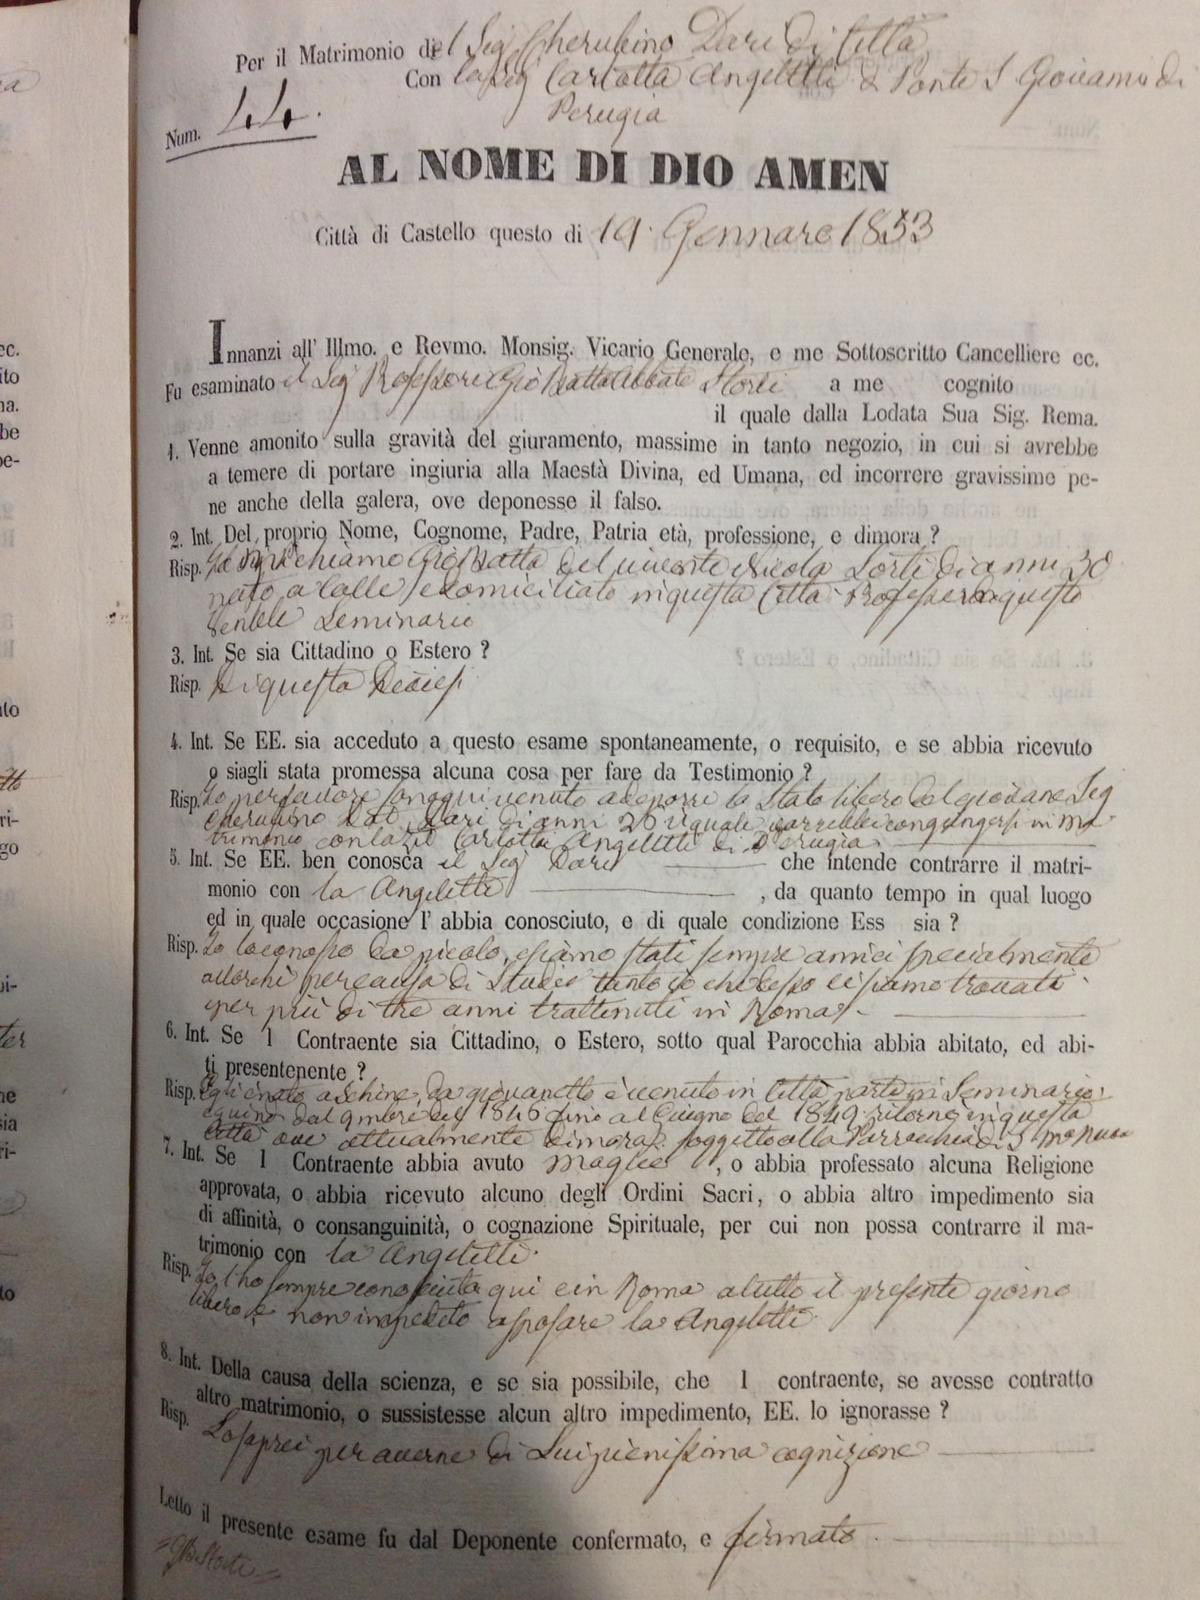 Per il Matrimonio del Sig Cherubino Dari di Città
Con la Sig Carlotta Angeletti di Ponte S Giovanni di
Perugia
Num. 44.
AL NOME DI DIO AMEN
Città di Castello questo di 19. Gennaro 1853
Innanzi all' Illmo. e Revmo. Monsig. Vicario Generale, e me Sottoscritto Cancelliere ec.
Fu esaminato il Sig Professore Gio Batta Abbate Storti a me cognito
il quale dalla Lodata Sua Sig. Rema.
1. Venne amonito sulla gravità del giuramento, massime in tanto negozio, in cui si avrebbe
a temere di portare ingiuria alla Maestà Divina, ed Umana, ed incorrere gravissime pe-
ne anche della galera, ove deponesse il falso.
2. Int. Del proprio Nome, Cognome, Padre, Patria età, professione, e dimora ?
Risp. Io mi chiamo Gio Batta del vivente Nicola Storti di anni 30
nato a Calle, e domiciliato in questa Città Professore in questo
Seminario
3. Int. Se sia Cittadino o Estero ?
Risp. Di questa Diocesi
4. Int. Se EE. sia acceduto a questo esame spontaneamente, o requisito, e se abbia ricevuto
o siagli stata promessa alcuna cosa per fare da Testimonio ?
Risp. Io per favore sono qui venuto a deporre lo Stato libero del giovane Sig
Cherubino Dari di anni 26 il quale vorrebbe congiungersi in ma-
trimonio con la Carlotta Angeletti di Perugia
5. Int. Se EE. ben conosca il Sig Dari che intende contrarre il matri-
monio con la Angeletti , da quanto tempo in qual luogo
ed in quale occasione l' abbia conosciuto, e di quale condizione Ess sia ?
Risp. Io lo conosco da piccolo, e siamo stati sempre amici specialmente
allorchè per causa di Studio tanto io che esso ci siamo trovati
per più di tre anni trattenuti in Roma
6. Int. Se l Contraente sia Cittadino, o Estero, sotto qual Parocchia abbia abitato, ed abi-
ti presentenente ?
Risp. Egli è nato a Schine, da giovanetto è venuto in Città partì in Seminario
e quindi dal 9mbre del 1846 fino al Giugno del 1849. ritornò in questa
Città ove attualmente dimora soggetto alla Parrocchia di S. Ma Nuova
7. Int. Se l Contraente abbia avuto moglie , o abbia professato alcuna Religione
approvata, o abbia ricevuto alcuno degli Ordini Sacri, o abbia altro impedimento sia
di affinità, o consanguinità, o cognazione Spirituale, per cui non possa contrarre il ma-
trimonio con la Angeletti.
Risp. Io l'ho sempre conosciuto qui e in Roma a tutto il presente giorno
libero e non impedito a sposare la Angeletti
8. Int. Della causa della scienza, e se sia possibile, che l contraente, se avesse contratto
altro matrimonio, o sussistesse alcun altro impedimento, EE. lo ignorasse ?
Risp. Lo saprei per averne di Lui pienissima cognizione
Letto il presente esame fu dal Deponente confermato, e firmato.
GB Storti